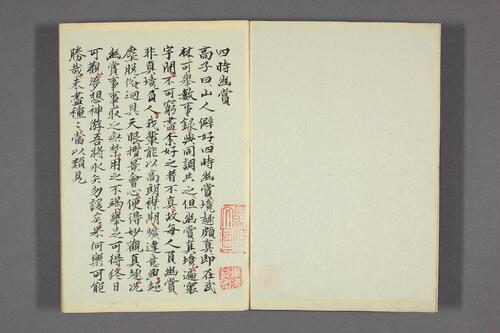 四時幽賞
高子曰山人僻好四時幽賞境趣頗真即在武
林可舉數事錄與同調共之但幽賞真境遍寰
宇間不可窮盡奈好之者不真故每人負幽賞
非真境負人我輩能以高朗襟期曠達意興超
塵脫俗迥具天眼攬景會心便得妙觀真趣況
幽賞事事取之無禁用之不竭舉足可得終日
可觀夢想神游吾將永矢勿諼矣果何樂可能
勝哉未盡種種當以類見